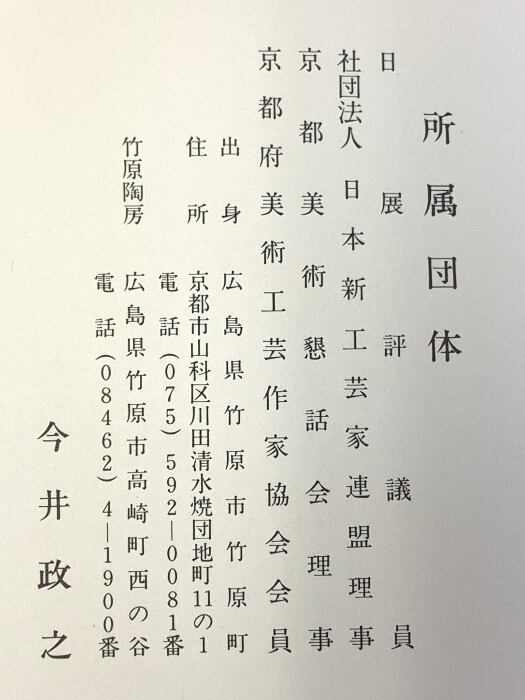 所属団体
日展評議員
社団法人 日本新工芸家連盟理事
京都美術懇話会理事
京都府美術工芸作家協会会員
出身 広島県竹原市竹原町
住所 京都市山科区川田清水焼団地町11の1
電話(075)592―0081番
竹原陶房 広島県竹原市高崎町西の谷
電話(08462)4―1900番
今井政之